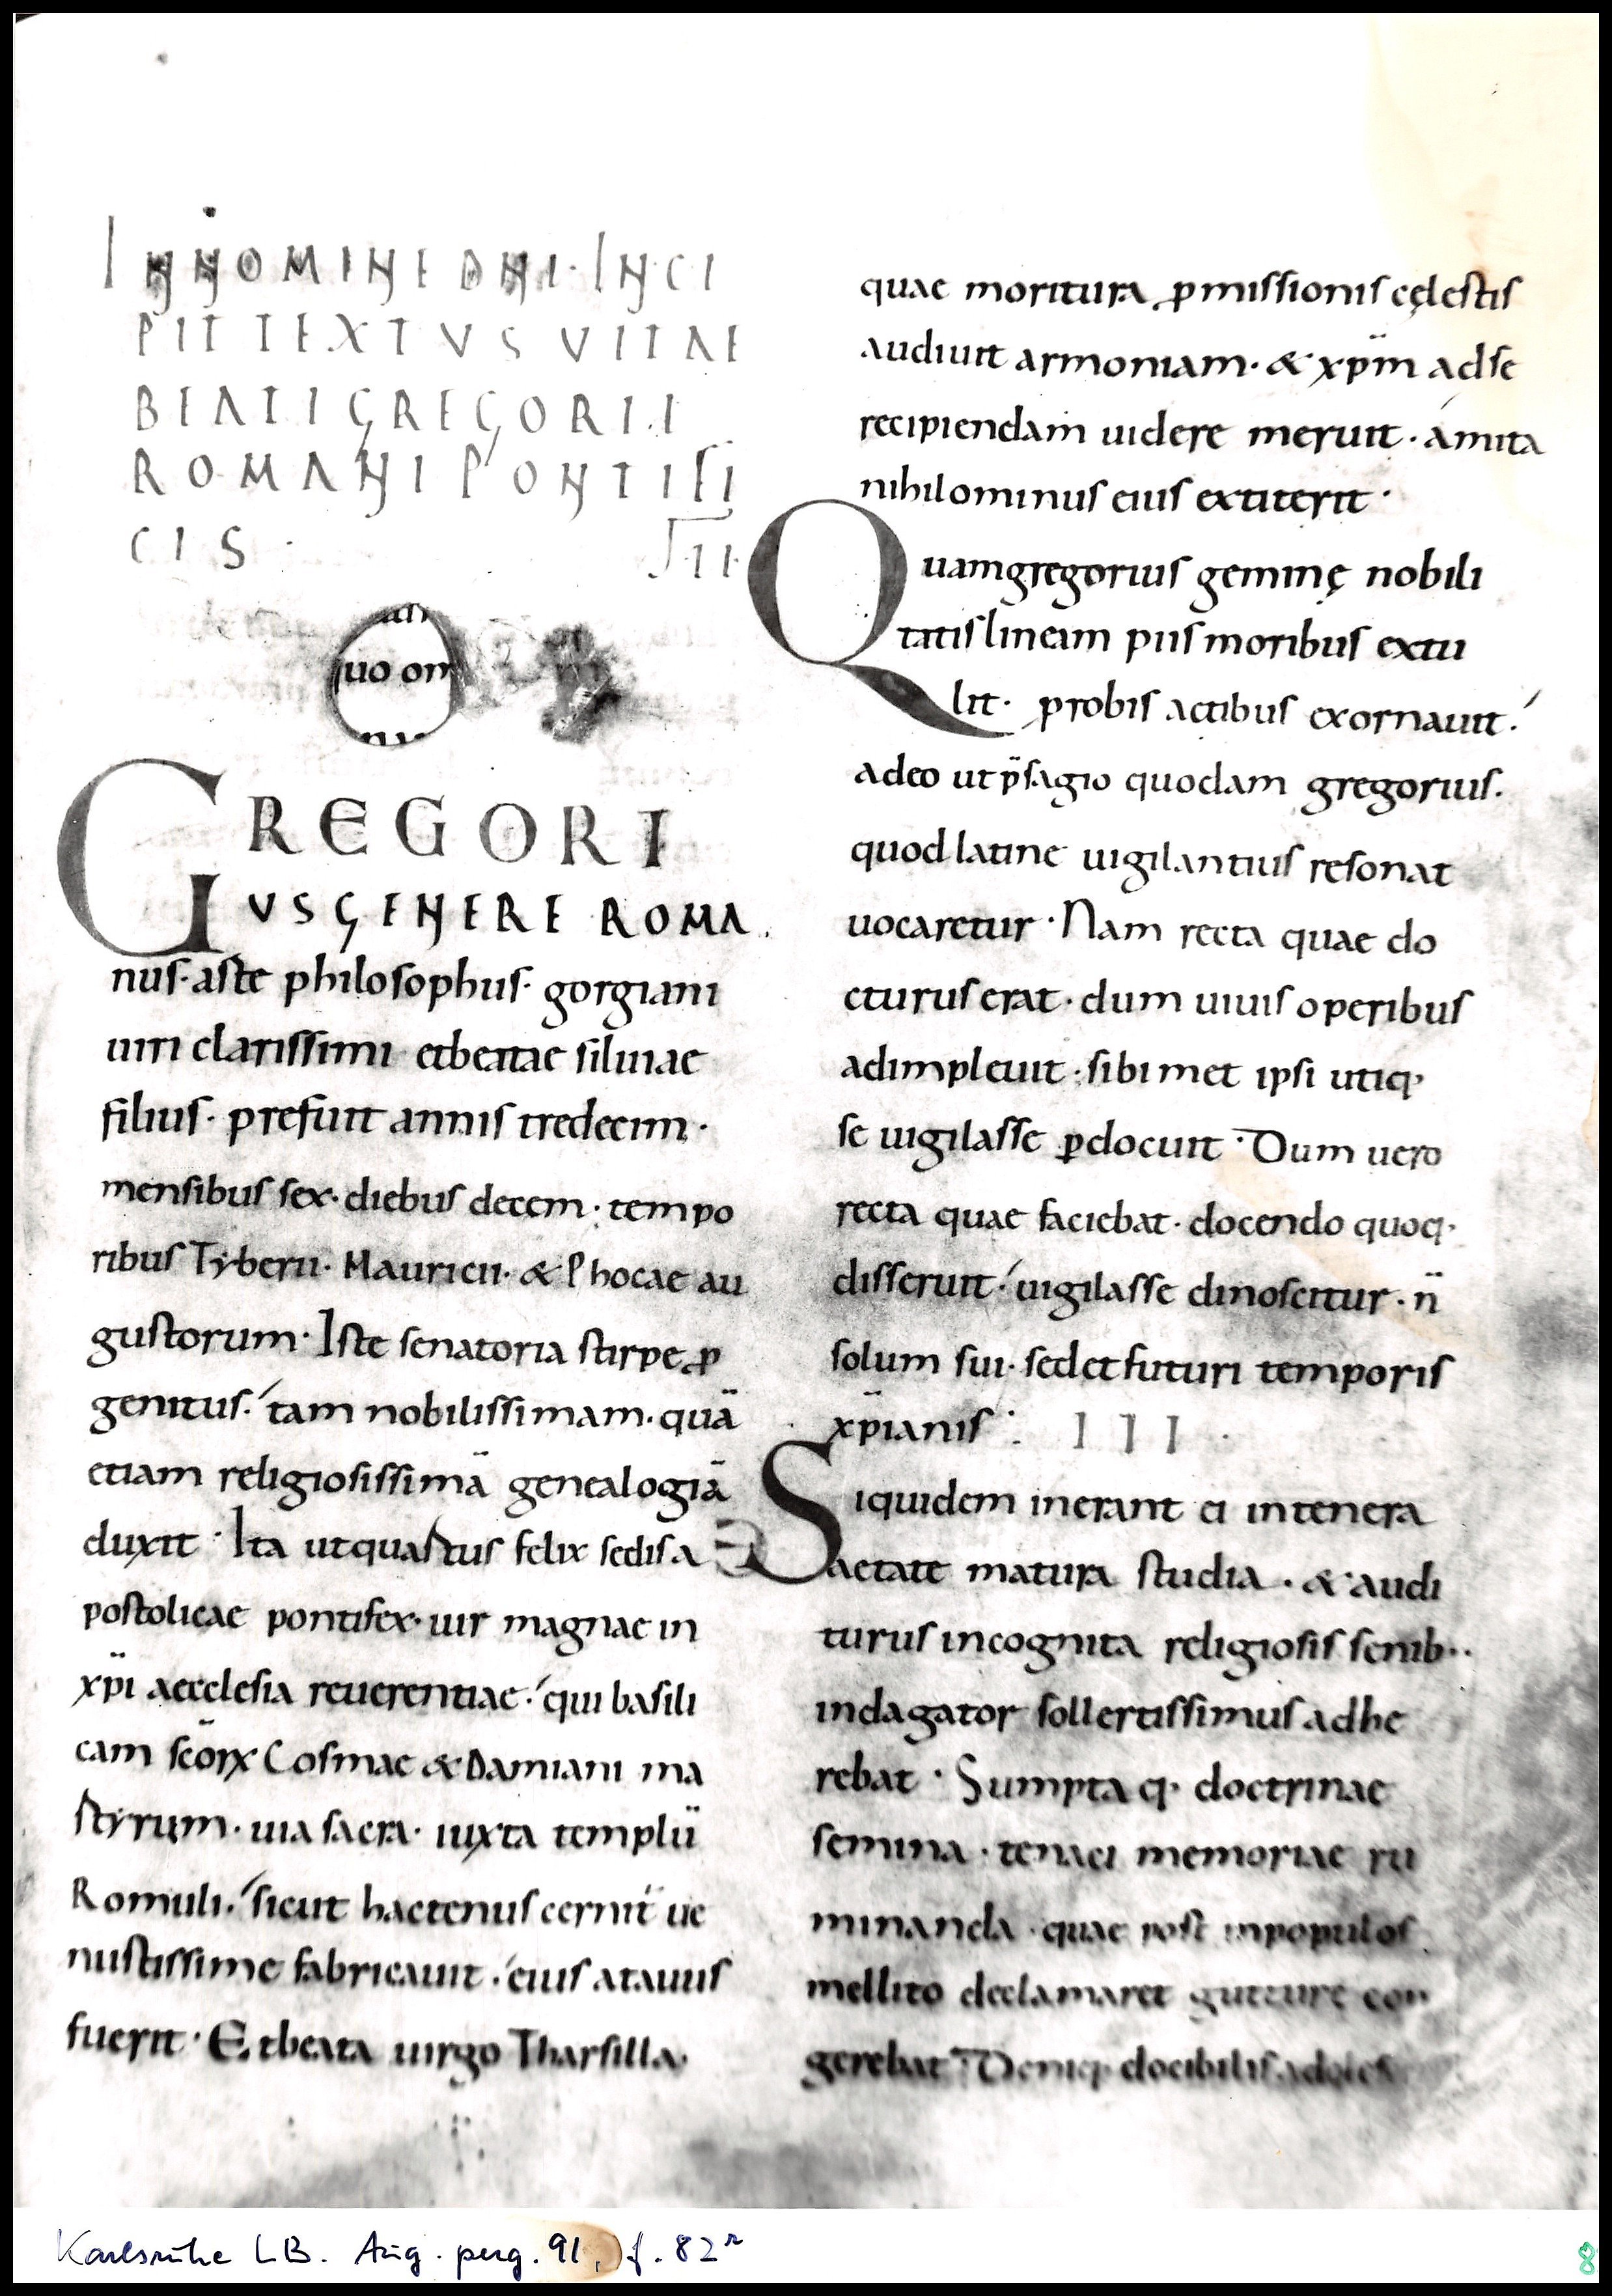 IN NOMINE DNI· INCI
PIT TEXTVS VITAE
BEATI GREGORII
ROMANI PONTIFI
CIS ·
II·
quo om
GREGORI
VS GENERE ROMA
nus· arte philosophus· gorgiani
uiri clarissimi et beatae siluiae
filius· prefuit annis tredecim·
mensibus sex· diebus decem· tempo
ribus Tyberii· Mauricii· & Phocae au
gustorum· Iste senatoria stirpe ꝓ
genitus· tam nobilissimam· quā
etiam religiosissimā genealogiā
duxit · Ita ut quartus felix sedis a
postolicae pontifex· uir magnae in
xp̄i aecclesia reuerentiae· qui basili
cam scōrꝝ Cosmae & Damiani ma
rtyrum· uia sacra· iuxta templū
Romuli· sicut hactenus cernit̄ ue
nustissime fabricauit · eius atauus
fuerit· Et beata uirgo Tharsilla·
quae moritura ꝓmissionis cęlestis
audiuit armoniam· & xp̄m ad se
recipiendam uidere meruit · ámita
nihilominus eius extiterit ·
Quam gregorius geminę nobili
tatis lineam piis moribus extu
lit· probis actibus exornauit·
adeo ut p̄sagio quodam gregorius·
quod latine uigilantius resonat
uocaretur · Nam recta quae do
cturus erat· dum uiuis operibus
adimpleuit · sibimet ipsi utiq·
se uigilasse ꝑdocuit · Dum uero
recta quae faciebat· docendo quoq·
disseruit· uigilasse dinoscitur· n̄
solum sui· sed et futuri temporis
xp̄ianis : III ·
Siquidem inerant ei in tenera
aetate matura studia · & audi
turus incognita religiosis senib··
indagator sollertissimus adhe
rebat · Sumptaq· doctrinae
semina · tenaci memoriae ru
minanda · quae post in populos
mellito declamaret gutture con
gerebat Deniq· docibilis adoles
Karlsruhe LB. Aug. perg. 91, f. 82r
8